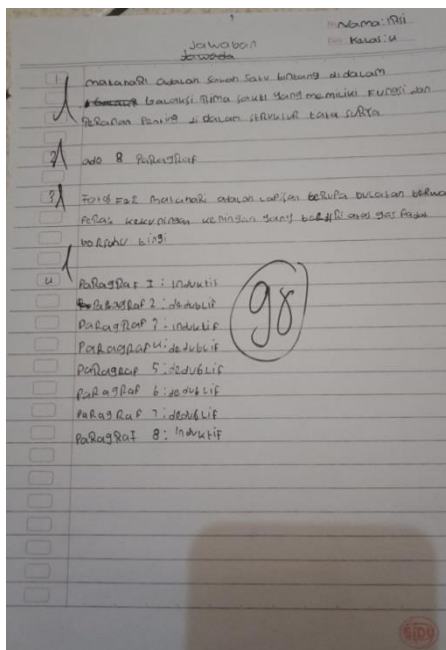 Nama: Irsi
Kelas: U
Jawaban
Jawada
1 matahari adalah salah satu bintang di dalam
Galaksi Bima Sakti yang memiliki Fungsi dan
Peranan Penting di dalam struktur tata surya
2 ada 8 ParagraF
3 matahari adalah lapisan berupa bulatan berwa
Perak kekuningan yang atas gas Padat
bersuhu tinggi
4 ParagRaF I : Induktif
PaRagRaF 2 : deduktif
PaRagRaF ? : induktif
PaRagRaF 4 : deduktif
PaRagRaF 5 : deduktif
PaRagRaF 6 : deduktif
PaRagRaF 7 : deduktif
PaRagRaF 8 : Induktif
98
SIDU